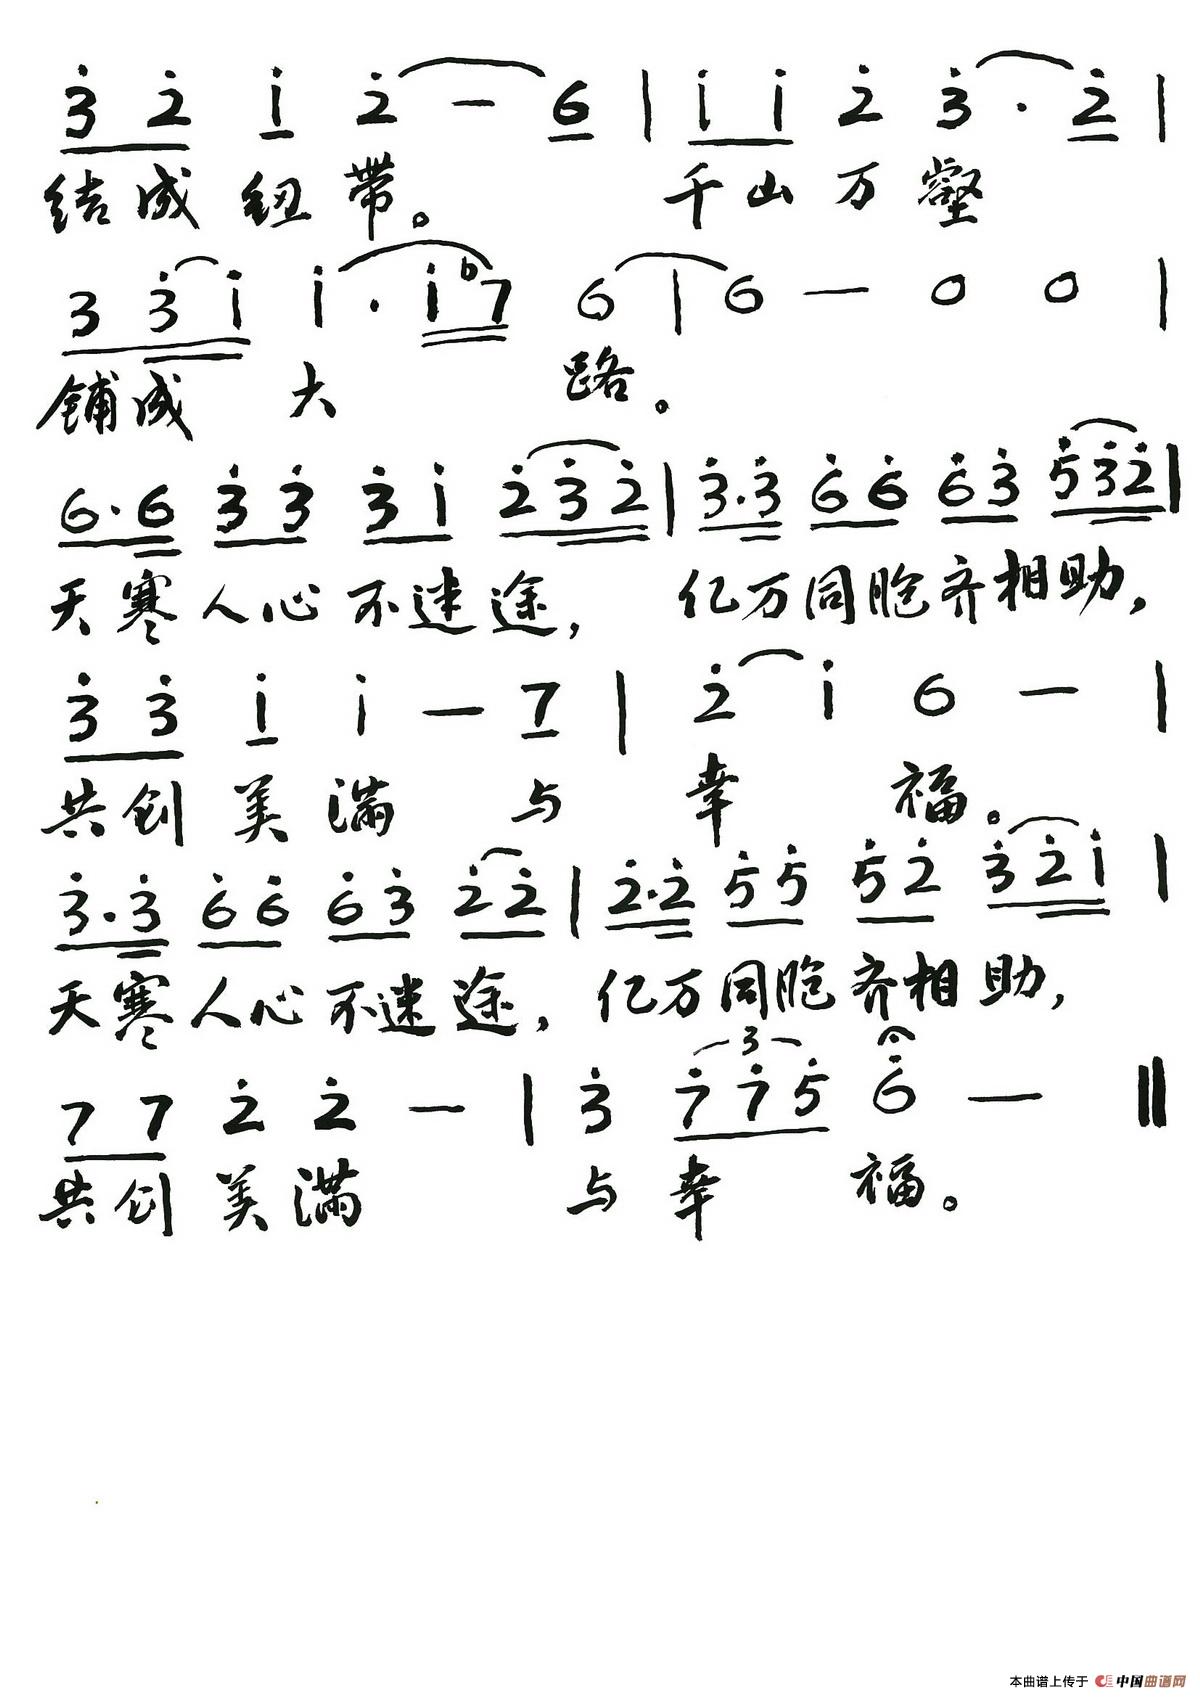 3̇ 2̇ 1̇ 2̇ — 6 | 1̇ 1̇ 2̇ 3̇ · 2̇ |
结成纽带。 千山万壑
3 3̇ 1̇ 1̇ · 1̇ b7 6 | 6 — 0 0 |
铺成 大 路。
6 · 6 3̇ 3̇ 3̇ 1̇ 2̇ 3̇ 2̇ | 3̇ · 3̇ 6̇ 6̇ 6̇ 3̇ 5̇ 3̇ 2̇ |
天寒人心不迷途, 亿万同胞齐相助,
3̇ 3̇ 1̇ 1̇ — 7 | 2̇ 1̇ 6 — |
共创美满 与 幸 福。
3̇ · 3̇ 6̇ 6̇ 6̇ 3̇ 2̇ 2̇ | 2̇ · 2̇ 5̇ 5̇ 5̇ 2̇ 3̇ 2̇ 1̇ |
天寒人心不迷途, 亿万同胞齐相助,
3
7 7 2̇ 2̇ — | 3̇ 7̇ 7̇ 5̇ 6̇ — ‖
共创美满 与幸 福。
本曲谱上传于 中国曲谱网